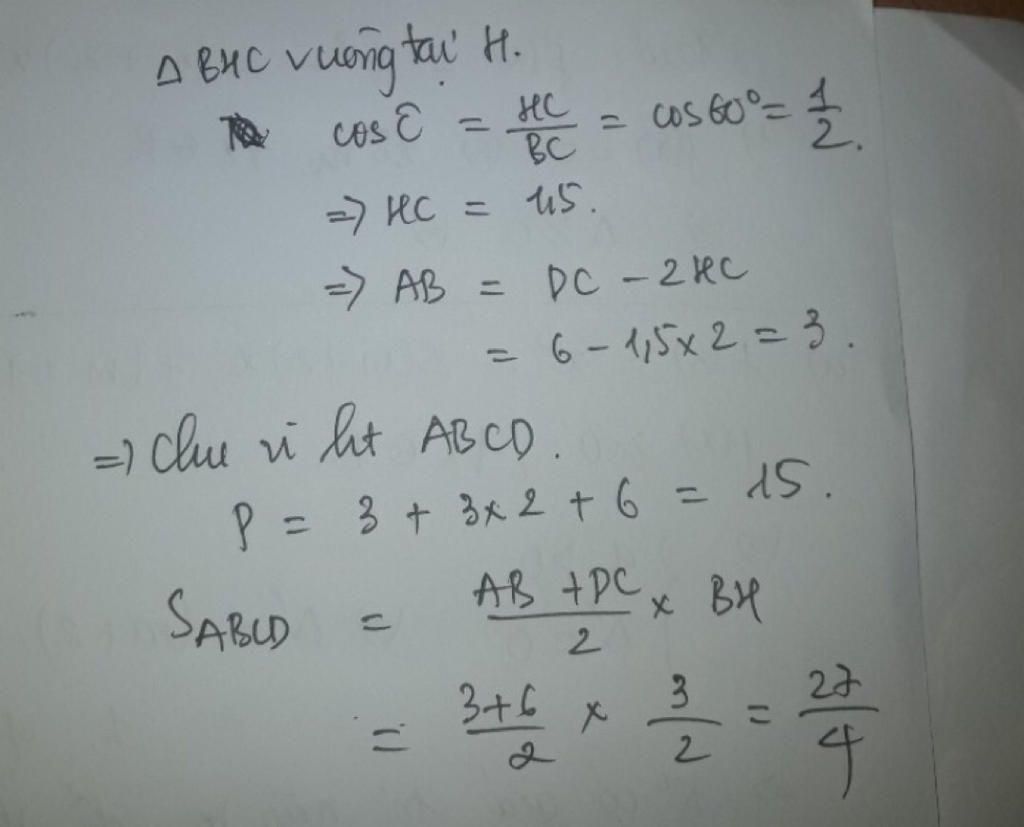 Δ BHC vuông tại H.
cos Ĉ = HC/BC = cos 60° = 1/2.
=> HC = 1,5.
=> AB = DC - 2HC
= 6 - 1,5 x 2 = 3.
=> Chu vi ht ABCD.
P = 3 + 3x2 + 6 = 15.
S_ABCD = (AB + DC)/2 x BH
= (3+6)/2 x 3/2 = 27/4